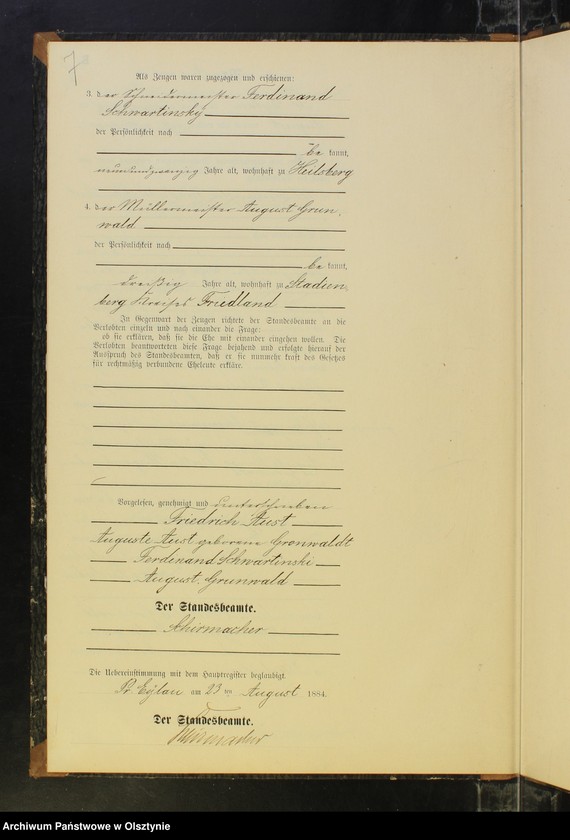 7
Als Zeugen waren zugezogen und erschienen:
3. der Schneidermeister Ferdinand
Schwartinsky
der Persönlichkeit nach
be kannt,
neunundzwanzig Jahre alt, wohnhaft zu Heilsberg
4. der Müllermeister August Grun,
wald
der Persönlichkeit nach
be kannt,
dreißig Jahre alt, wohnhaft zu Stadien,
berg Kreises Friedland
In Gegenwart der Zeugen richtete der Standesbeamte an die
Verlobten einzeln und nach einander die Frage:
ob sie erklären, daß sie die Ehe mit einander eingehen wollen. Die
Verlobten beantworteten diese Frage bejahend und erfolgte hierauf der
Ausspruch des Standesbeamten, daß er sie nunmehr kraft des Gesetzes
für rechtmäßig verbundene Eheleute erkläre.
Vorgelesen, genehmigt und unterschrieben
Friedrich Aust
Auguste Aust geborene Gronwaldt
Ferdinand Schwartinski
August. Grunwald
Der Standesbeamte.
Schirmacher
Die Uebereinstimmung mit dem Hauptregister beglaubigt.
Pr. Eylau am 23 ten August 1884.
Der Standesbeamte.
Schirmacher
Archiwum Państwowe w Olsztynie